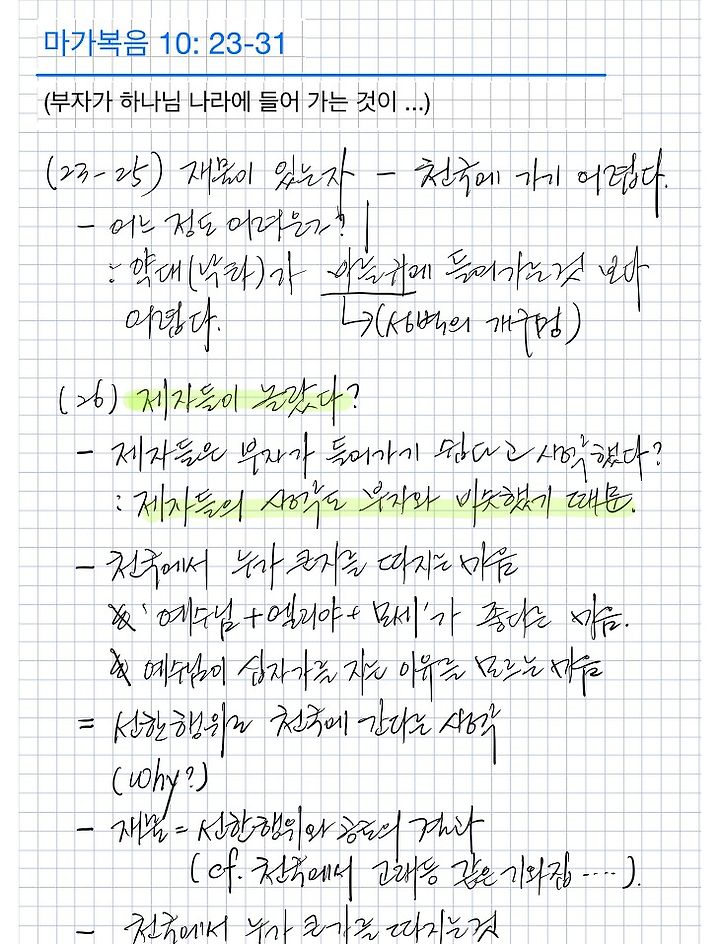 마가복음 10: 23-31
(부자가 하나님 나라에 들어 가는 것이 ...)
(23-25) 재물이 있는자 - 천국에 가기 어렵다.
- 어느 정도 어려운가?
: 약대(낙타)가 바늘귀에 들어가는것 보다
어렵다. ↳(성벽의 개구멍)
(26) 제자들이 놀랐다?
- 제자들은 부자가 들어가기 쉽다고 생각했다?
: 제자들의 생각도 부자와 비슷했기 때문.
- 천국에서 누가 큰지를 따지는 마음
※ '예수님+엘리야+모세'가 좋다는 마음.
※ 예수님이 십자가를 지는 이유를 모르는 마음
= 선한행위로 천국에 간다는 생각
(why?)
- 재물 = 선한행위와 공로의 결과
(cf. 천국에서 고래등 같은 기와집 ....).
- 천국에서 누가 큰가를 따지는것